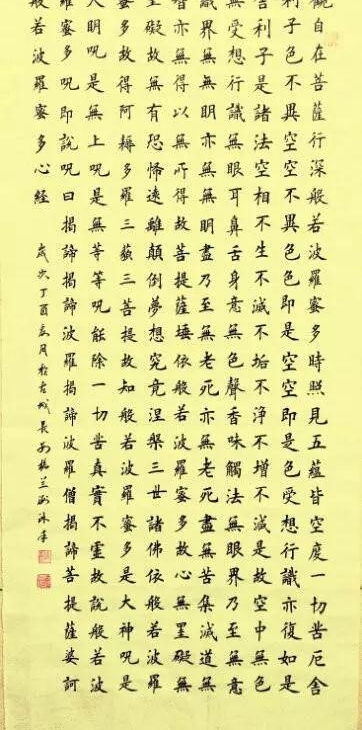 觀自在菩薩行深般若波羅蜜多時照見五蘊皆空度一切苦厄舍
利子色不異空空不異色色即是空空即是色受想行識亦復如是
舍利子是諸法空相不生不滅不垢不淨不增不減是故空中無色
無受想行識無眼耳鼻舌身意無色聲香味觸法無眼界乃至無意
識界無無明亦無無明盡乃至無老死亦無老死盡無苦集滅道無
智亦無得以無所得故菩提薩埵依般若波羅蜜多故心無罣礙無
罣礙故無有恐怖遠離顛倒夢想究竟涅槃三世諸佛依般若波羅
蜜多故得阿耨多羅三藐三菩提故知般若波羅蜜多是大神呪是
大明呪是無上呪是無等等呪能除一切苦真實不虛故說般若波
羅蜜多呪即說呪曰揭諦揭諦波羅揭諦波羅僧揭諦菩提薩婆訶
般若波羅蜜多心經
歲次丁酉 月於古城長